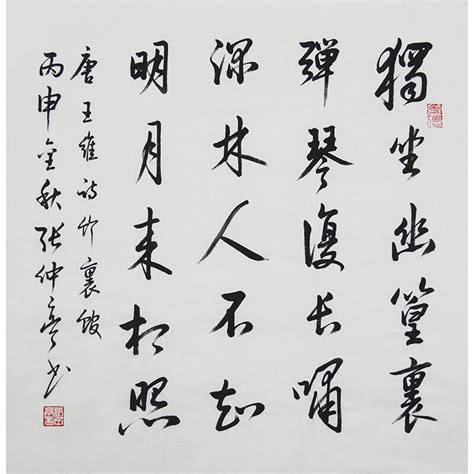 獨坐幽篁裏
彈琴復長嘯
深林人不知
明月来相照
唐王維詩竹裏館
丙申金秋張仲亭书